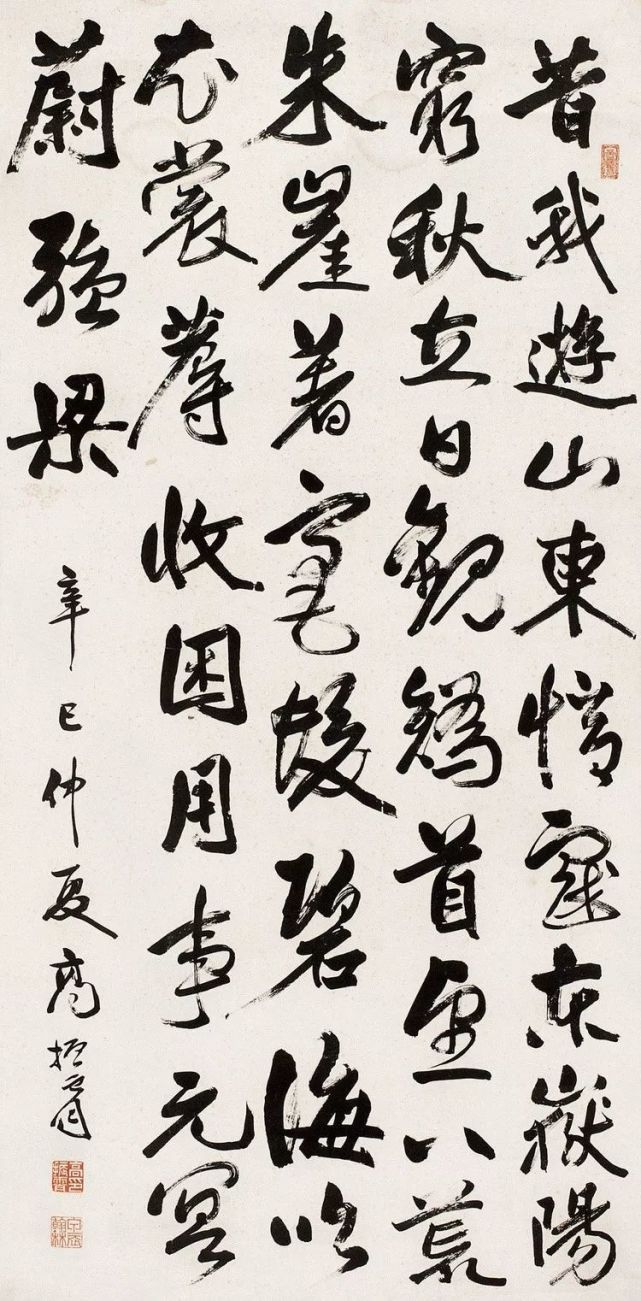 昔我遊山東憶戲東嶽陽
窮秋立日觀矯首望八荒
朱崖著毫髮碧海吹
衣裳蓐收困用事元冥
蔚強梁
辛巳仲夏高振霄